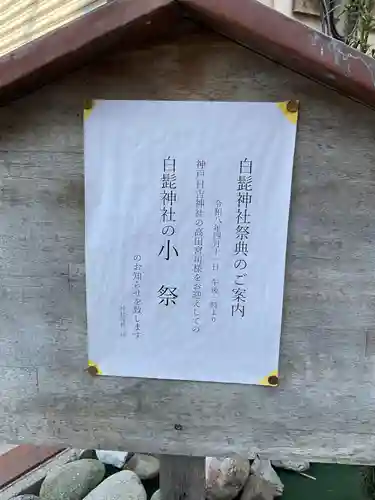 白髭神社祭典のご案内
令和八年四月十一日 午後 時より
神戸日吉神社の高田宮司様をお迎えしての
白髭神社の小祭
のお知らせを致します